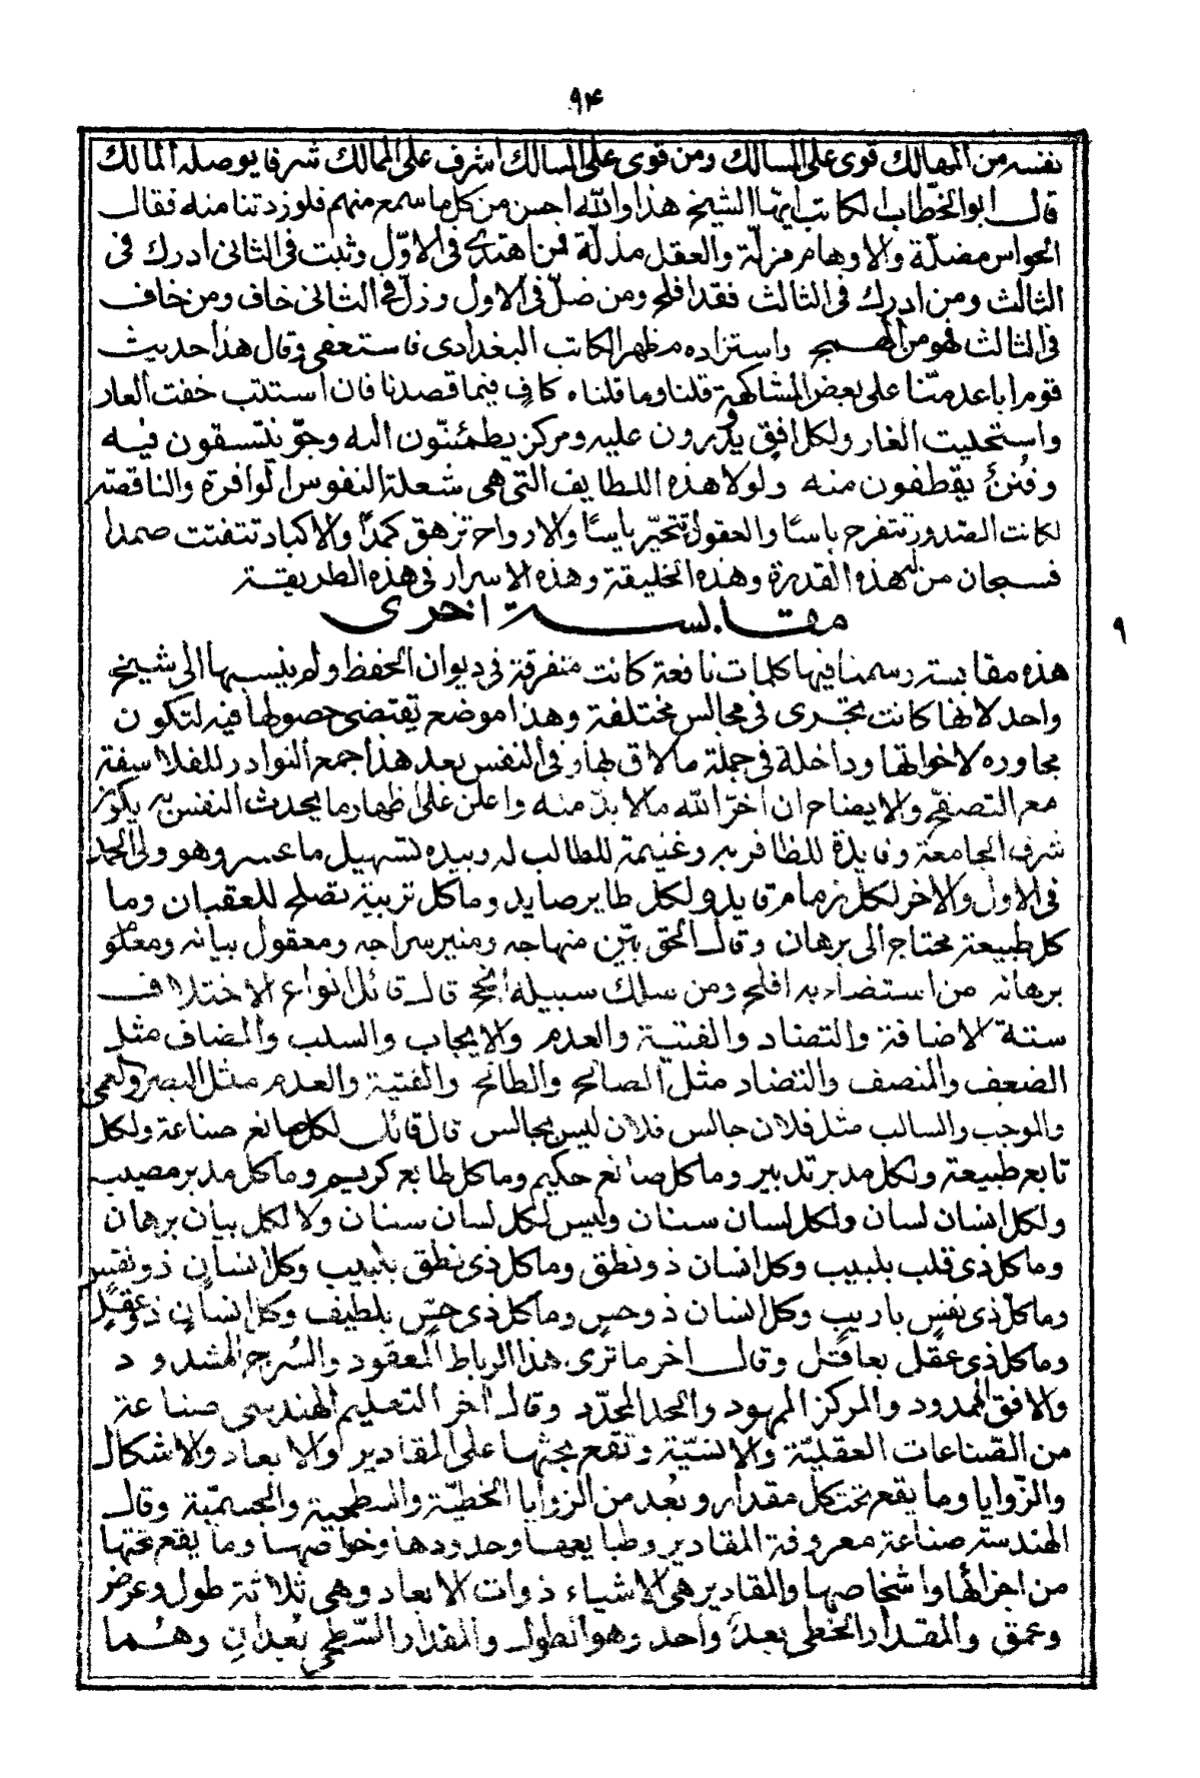 ٩٤
نفسه من المهالك قوى على المسالك ومن قوى على المسالك اشرف على الممالك شرفا يوصله المالك
قال ابو الخطاب الكاتب ايها الشيخ هذا والله احسن من كل ما سمع منهم فلو زدتنا منه فقال
الحواس مضلة والاوهام مزلة والعقل مدلة فمن اهتدى فى الاول وثبت فى الثانى ادرك فى
الثالث ومن ادرك فى الثالث فقد افلح ومن ضل فى الاول وزل فى الثانى خاف ومن خاف
فى الثالث فهو من الهمج واستزاده مظهر الكاتب البغدادى فاستعفى وقال هذا حديث
قوم اباعد منّا على بعض المشاكهة قلنا وما قلناه كاف فيما قصدنا فان استتب خفت العار
واستحليت الغار ولكل افق يدورون عليه ومركز يطمئنّون اليه وجوّ يتسقون فيه
وفنن يقطفون منه ولولا هذه اللطايف التى هى شعلة النفوس الوافرة والناقصة
لكانت الصدور تتقرح باسًا والعقول تتحيّر ياسًا والارواح تزهق كمدًا والاكباد تتفتت صمدا
فسبحان من له هذه القدرة وهذه الخليقة وهذه الاسرار فى هذه الطريقة
مقابسة اخرى
٩
هذه مقابسة رسمنا فيها كلمات نافعة كانت متفرقة فى ديوان الحفظ ولم ينسبها الى شيخ
واحد لانها كانت تجرى فى مجالس مختلفة وهذا موضع يقتضى حصولها فيه لتكون
مجاوره لاخواتها وداخلة فى جملة ما لاق بها وفى النفس بعد هذا جمع النوادر للفلاسفة
مع التصفح والايضاح ان اخر الله ما لا بد منه واعلن على اظهار ما يحدث النفس به يكون
شرف الجامعة وفايدة للظافر به وغنيمة للطالب له وبيده تسهيل ما عسر وهو ولى الحمد
فى الاول والاخر لكل زمام قايد ولكل طاير صايد وما كل تربية تصلح للعقبان وما
كل طبيعة محتاج الى برهان وقال الحق بيّن منهاجه ومنير سراجه ومعقول بيانه ومعلوم
برهانه من استضاء به افلح ومن سلك سبيله انجح قال قائل انواع الاختلاف
ستة الاضافة والتضاد والقنية والعدم والايجاب والسلب والمضاف مثل
الضعف والمنصف والتضاد مثل الصالح والطالح والقنية والعدم مثل البصر والعمى
والموجب والسالب مثل فلان جالس فلان ليس بجالس قال قائل لكل صانع صناعة ولكل
تابع طبيعة ولكل مدبر تدبير وما كل صانع حكيم وما كل طابع كريم وما كل مدبر مصيب
ولكل انسان لسان ولكل لسان سنان وليس لكل لسان سنان ولا لكل بيان برهان
وما كل ذى قلب بلبيب وكل انسان ذو نطق وما كل ذى نطق بلبيب وكل انسانٍ ذو نفس
وما كل ذى نفسٍ باريب وكل انسان ذو حس وما كل ذى حسّ بلطيف وكل انسانٍ ذو عقلٍ
وما كل ذى عقل بعاقل وقال اخر ما ترى هذا الرباط المعقود والسُرج المشدود
والافق الممدود والمركز المهود والحد المحدّد وقال آخر التعليم الهندسى صناعة
من الصّناعات العقليّة والانسيّة وتقع بحثها على المقادير والابعاد والاشكال
والزّوايا وما يقع تحت كل مقدار وبُعد من الزوايا الخطيّة والسطحية والجسميّة وقال
الهندسة صناعة معروفة المقادير وطبايعها وحدودها وخواصها وما يقع تحتها
من اجزائها واشخاصها والمقادير هى الاشياء ذوات الابعاد وهى ثلاثة طول وعرض
وعمق والمقدار الخطى بعد واحد وهو الطول والمقدار السّطحى بُعدانِ وهما